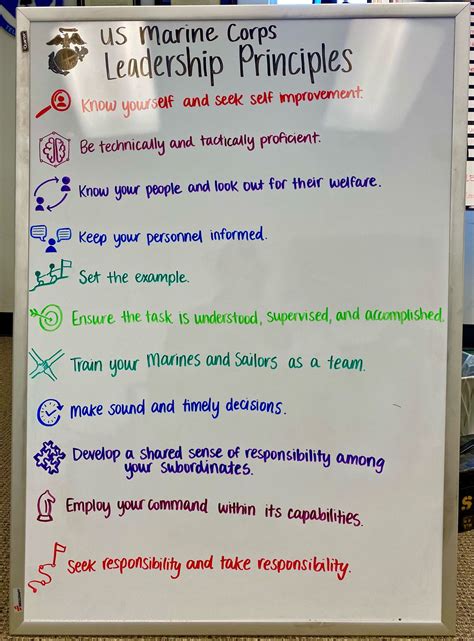 US Marine Corps
Leadership Principles
Know yourself and seek self improvement.
Be technically and tactically proficient.
Know your people and look out for their welfare.
Keep your personnel informed.
Set the example.
Ensure the task is understood, supervised, and accomplished.
Train your Marines and Sailors as a team.
make sound and timely decisions.
Develop a shared sense of responsibility among
your subordinates.
Employ your command within its capabilities.
Seek responsibility and take responsibility.